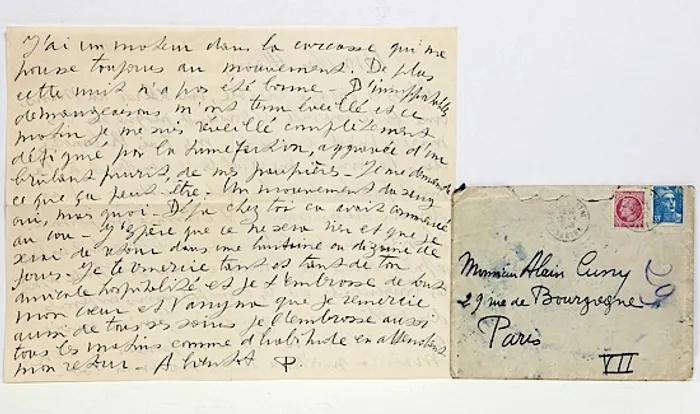 J'ai un moteur dans la carcasse qui me
pousse toujours au mouvement. De plus
cette nuit n'a pas été bonne - D'insupportables
demangeaisons m'ont tenu éveillé et ce
matin je me suis réveillé complètement
défiguré par la tuméfaction, aggravée d'un
brûlant prurit, de mes paupières - Je me demande
ce que ça peut être. Un mouvement du sang
oui, mais quoi - Déja chez toi ça avait commencé
au cou - J'espère que ce ne sera rien et que je
serai de retour dans une huitaine ou dizaine de
jours. Je te remercie tant et tant de ton
amicale hospitalité et je t'embrasse de tout
mon cœur et que je remercie
aussi de tous ses soins je l'embrasse aussi
tous les matins comme d'habitude en attendant
mon retour - A bientot P.
Monsieur Alain Cuny
29 rue de Bourgogne
Paris
VII
29